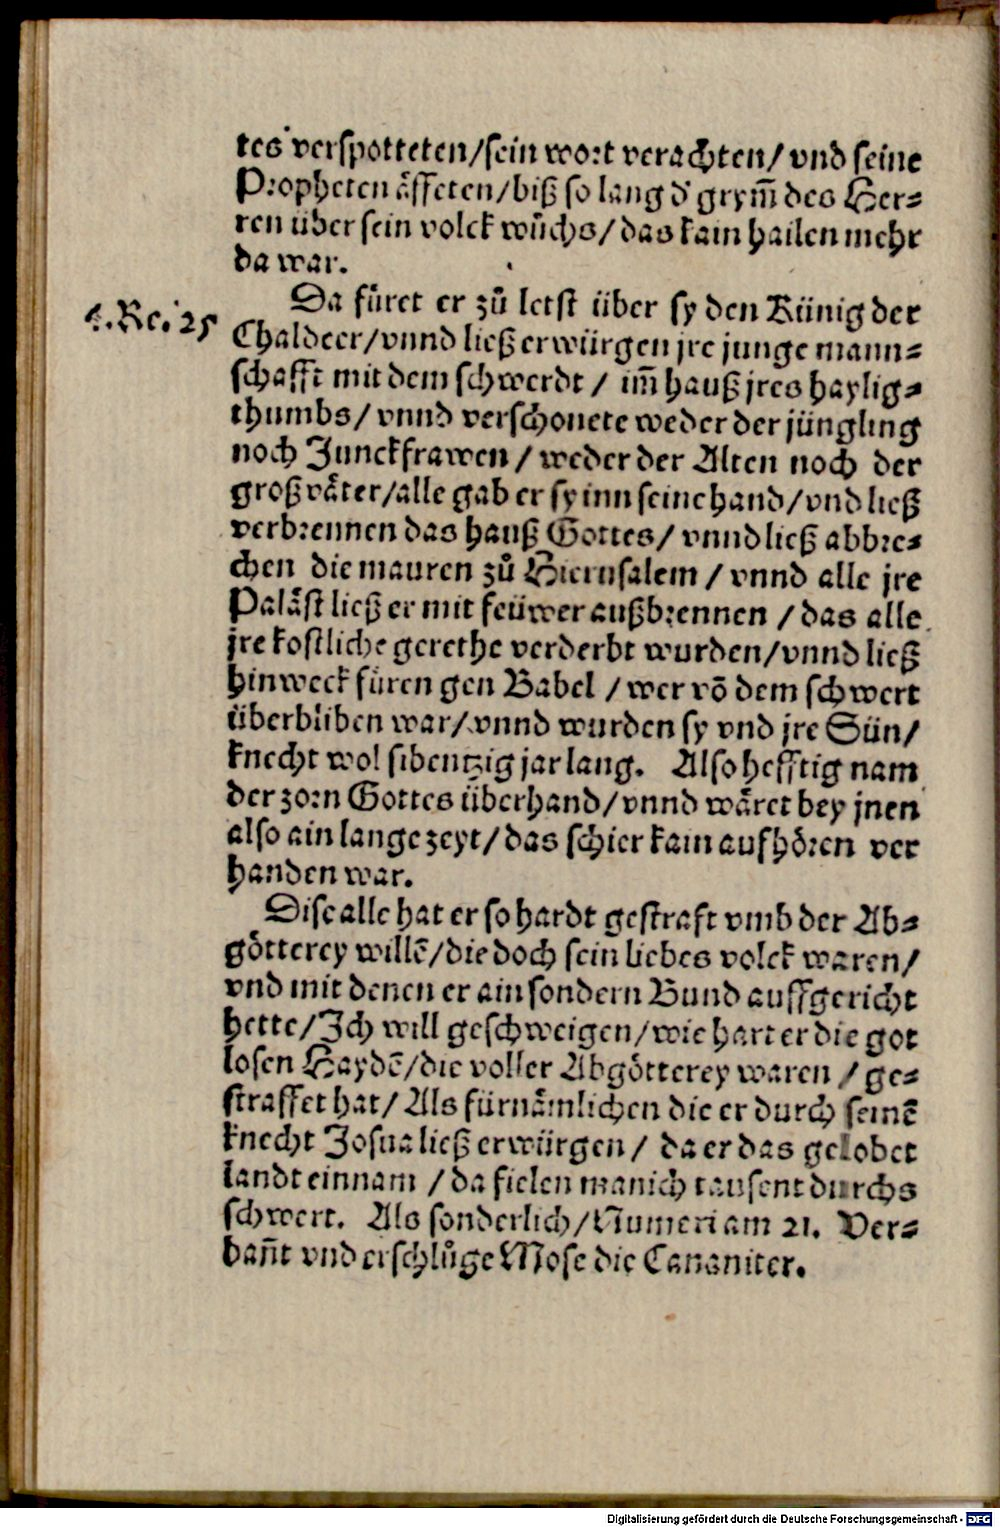 tes verspotteten/sein wort verachten/ vnd seine
Propheten åffeten/biß so lang d' grym̃ des Her-
ren über sein volck wůchs/das kain hailen mehr
da war.
Da fůret er zů letst über sy den Künig der
4. Re. 25
Chaldeer/vnnd ließ erwürgen jre junge mann-
schafft mit dem schwerdt / im̃ hauß jres haylig-
thumbs/ vnnd verschonete weder der jüngling
noch Junckfrawen / weder der Alten noch der
großvåter/alle gab er sy inn seine hand/vnd ließ
verbrennen das hauß Gottes/ vnnd ließ abbre-
chen die mauren zů Hierusalem / vnnd alle jre
Palåst ließ er mit feüwer außbrennen / das alle
jre kostliche gerethe verderbt wurden/vnnd ließ
hinweck füren gen Babel / wer võ dem schwert
überbliben war/vnnd wurden sy vnd jre Sün/
knecht wol sibentzig jar lang. Also hefftig nam
der zorn Gottes überhand/vnnd wåret bey jnen
also ain lange zeyt/das schier kain aufhören ver
handen war.
Dise alle hat er so hardt gestraft vmb der Ab-
götterey willẽ/die doch sein liebes volck waren/
vnd mit denen er ain sondern Bund auffgericht
hette/Jch will geschweigen/wie hart er die got
losen Haydẽ/die voller Abgötterey waren / ge-
straffet hat/ Als fürnåmlichen die er durch seinẽ
knecht Josua ließ erwürgen/ da er das gelobet
landt einnam / da fielen manich tausent durchs
schwert. Als sonderlich/Numeri am 21. Ver-
bañt vnd erschlůge Mose die Cananiter.
Digitalisierung gefördert durch die Deutsche Forschungsgemeinschaft - DFG